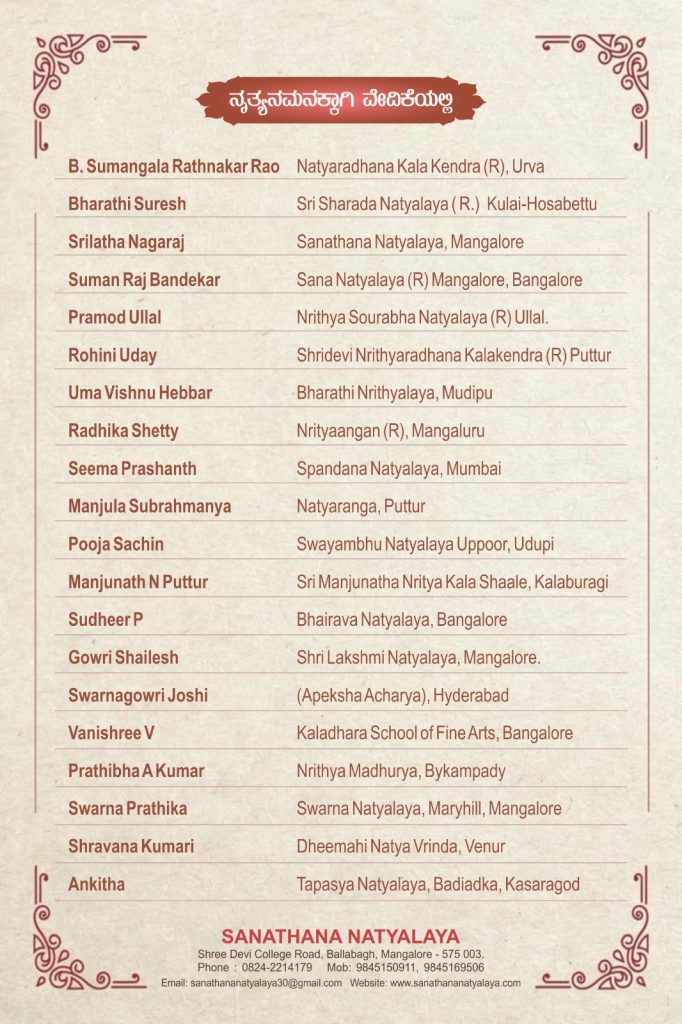 ನೃತ್ಯನಮನಕ್ಕಾಗಿ ವೇದಿಕೆಯಲ್ಲಿ
B. Sumangala Rathnakar Rao Natyaradhana Kala Kendra (R), Urva
Bharathi Suresh Sri Sharada Natyalaya ( R.) Kulai-Hosabettu
Srilatha Nagaraj Sanathana Natyalaya, Mangalore
Suman Raj Bandekar Sana Natyalaya (R) Mangalore, Bangalore
Pramod Ullal Nrithya Sourabha Natyalaya (R) Ullal.
Rohini Uday Shridevi Nrithyaradhana Kalakendra (R) Puttur
Uma Vishnu Hebbar Bharathi Nrithyalaya, Mudipu
Radhika Shetty Nrityaangan (R), Mangaluru
Seema Prashanth Spandana Natyalaya, Mumbai
Manjula Subrahmanya Natyaranga, Puttur
Pooja Sachin Swayambhu Natyalaya Uppoor, Udupi
Manjunath N Puttur Sri Manjunatha Nritya Kala Shaale, Kalaburagi
Sudheer P Bhairava Natyalaya, Bangalore
Gowri Shailesh Shri Lakshmi Natyalaya, Mangalore.
Swarnagowri Joshi (Apeksha Acharya), Hyderabad
Vanishree V Kaladhara School of Fine Arts, Bangalore
Prathibha A Kumar Nrithya Madhurya, Bykampady
Swarna Prathika Swarna Natyalaya, Maryhill, Mangalore
Shravana Kumari Dheemahi Natya Vrinda, Venur
Ankitha Tapasya Natyalaya, Badiadka, Kasaragod
SANATHANA NATYALAYA
Shree Devi College Road, Ballabagh, Mangalore - 575 003.
Phone : 0824-2214179 Mob: 9845150911, 9845169506
Email: sanathananatyalaya30@gmail.com Website: www.sanathananatyalaya.com